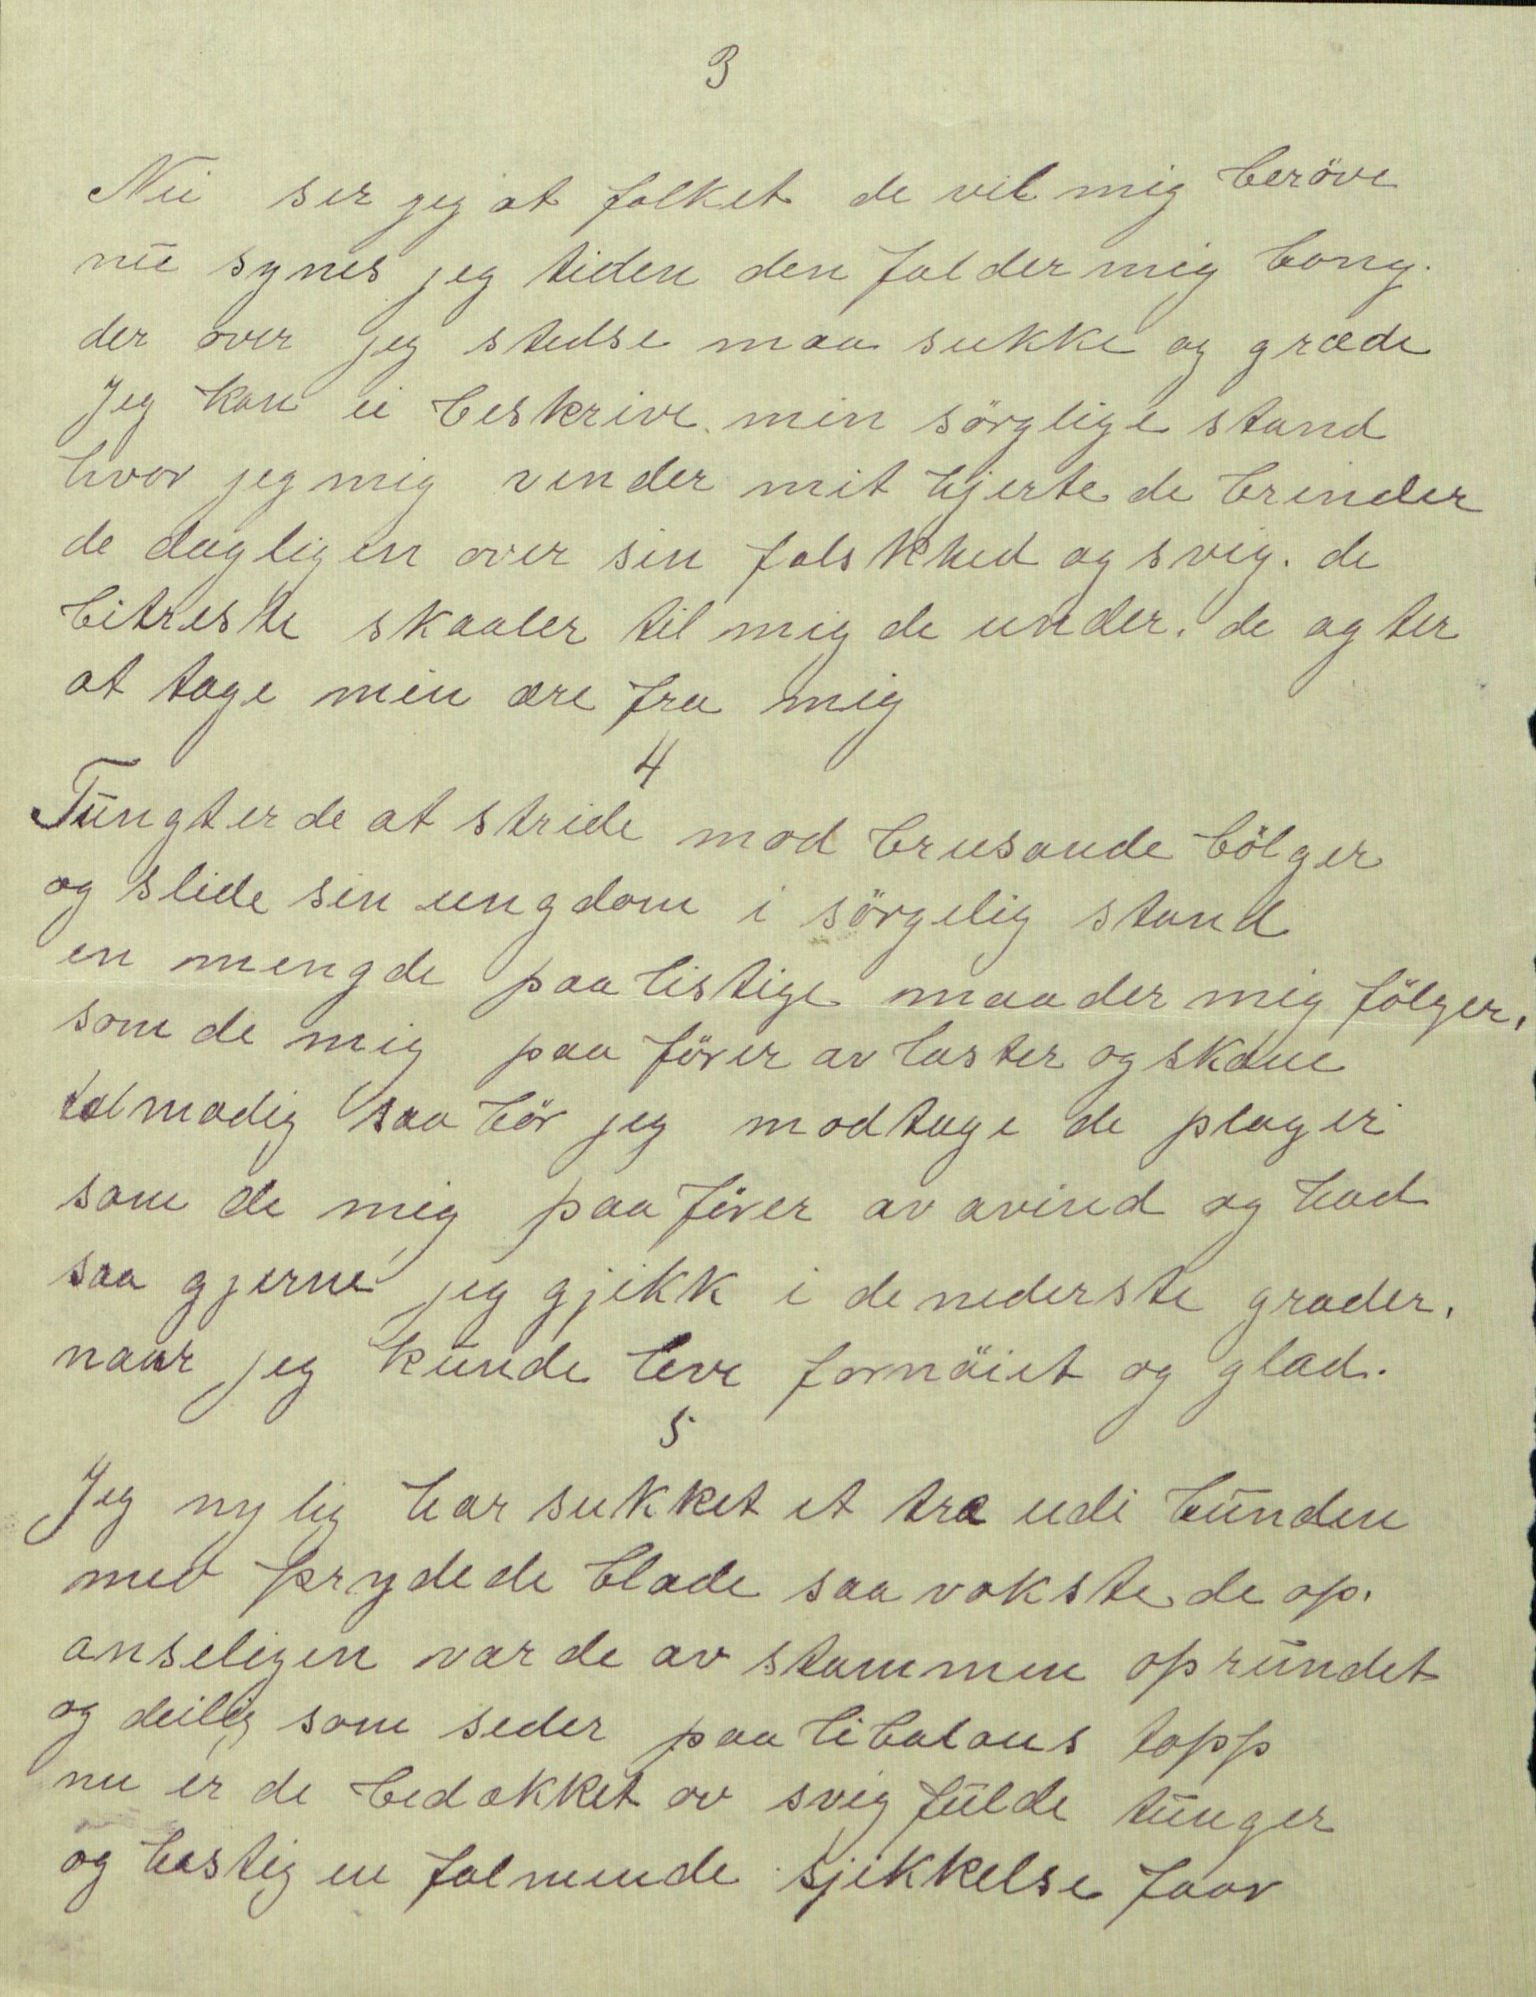 3
Nu ser jeg at folket de vil mig beröve
nu synes jeg tiden den falder mig lang.
der over jeg stedse maa sukke og græde
Jeg kan ei beskrive min sörglige stand
hvor jeg mig vender mit hjerte de brinder
de dagligen over sin falskhed og svig. de
bitreste skaaler til mig de under. de agter
at tage min ære fra mig
4
Tungt er de at stride mod brusande bölger
og slide sin ungdom i sörgelig stand
en mengde paa listige maader mig fölger,
som de mig paa förer av laster og skam
talmodig saa bör jeg modtage de plager
som de mig paa förer av avind og had
saa gjerne jeg gjikk i de nederste grader,
naar jeg kunde leve fornöiet og glad.
5
Jeg nylig har sukket et træ udi lunden
med prydede blade saa vokste de op.
anseligen var de av stammen oprundet
og deilig som seder paa libalons topp
nu er de bedækket av svigfulde tunger
og hastig en falmende sjikkelse faar